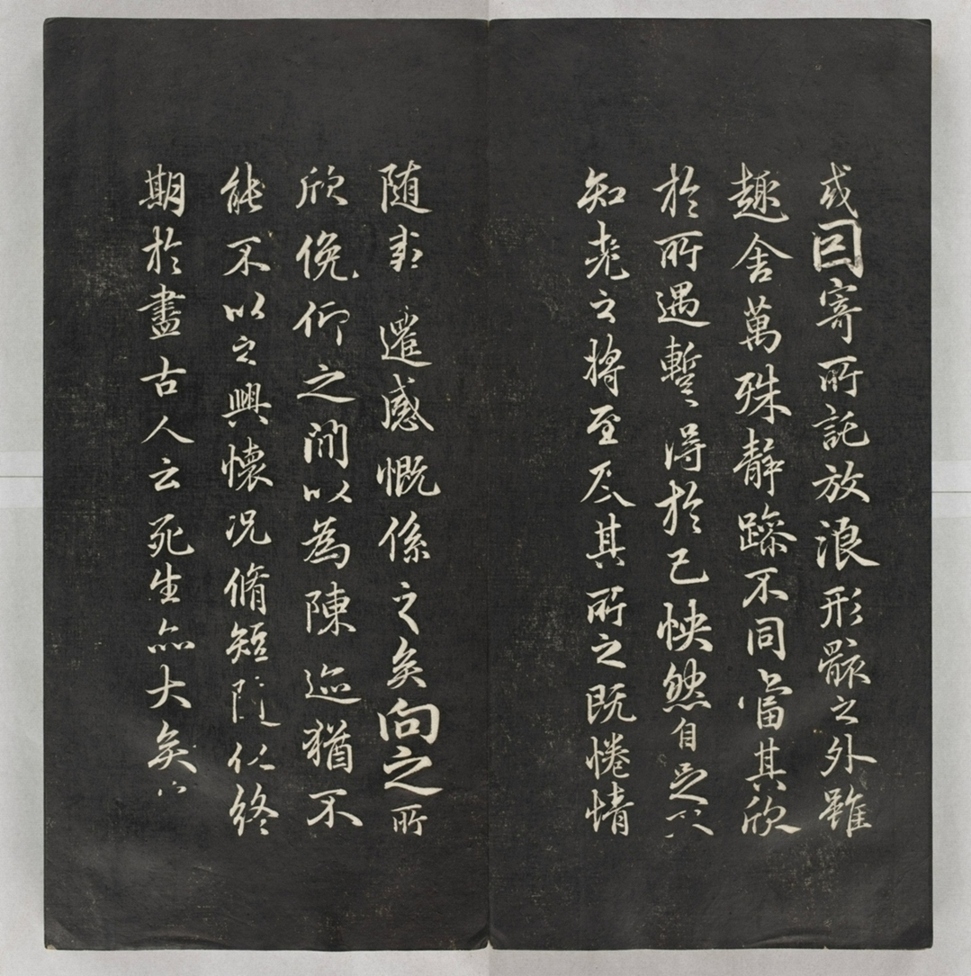 或因寄所託放浪形骸之外雖
趣舍萬殊靜躁不同當其欣
於所遇暫得於己怏然自足不
知老之將至及其所之既惓情
随事遷感慨係之矣向之所
欣俛仰之間以為陳迹猶不
能不以之興懷況脩短隨化終
期於盡古人云死生亦大矣